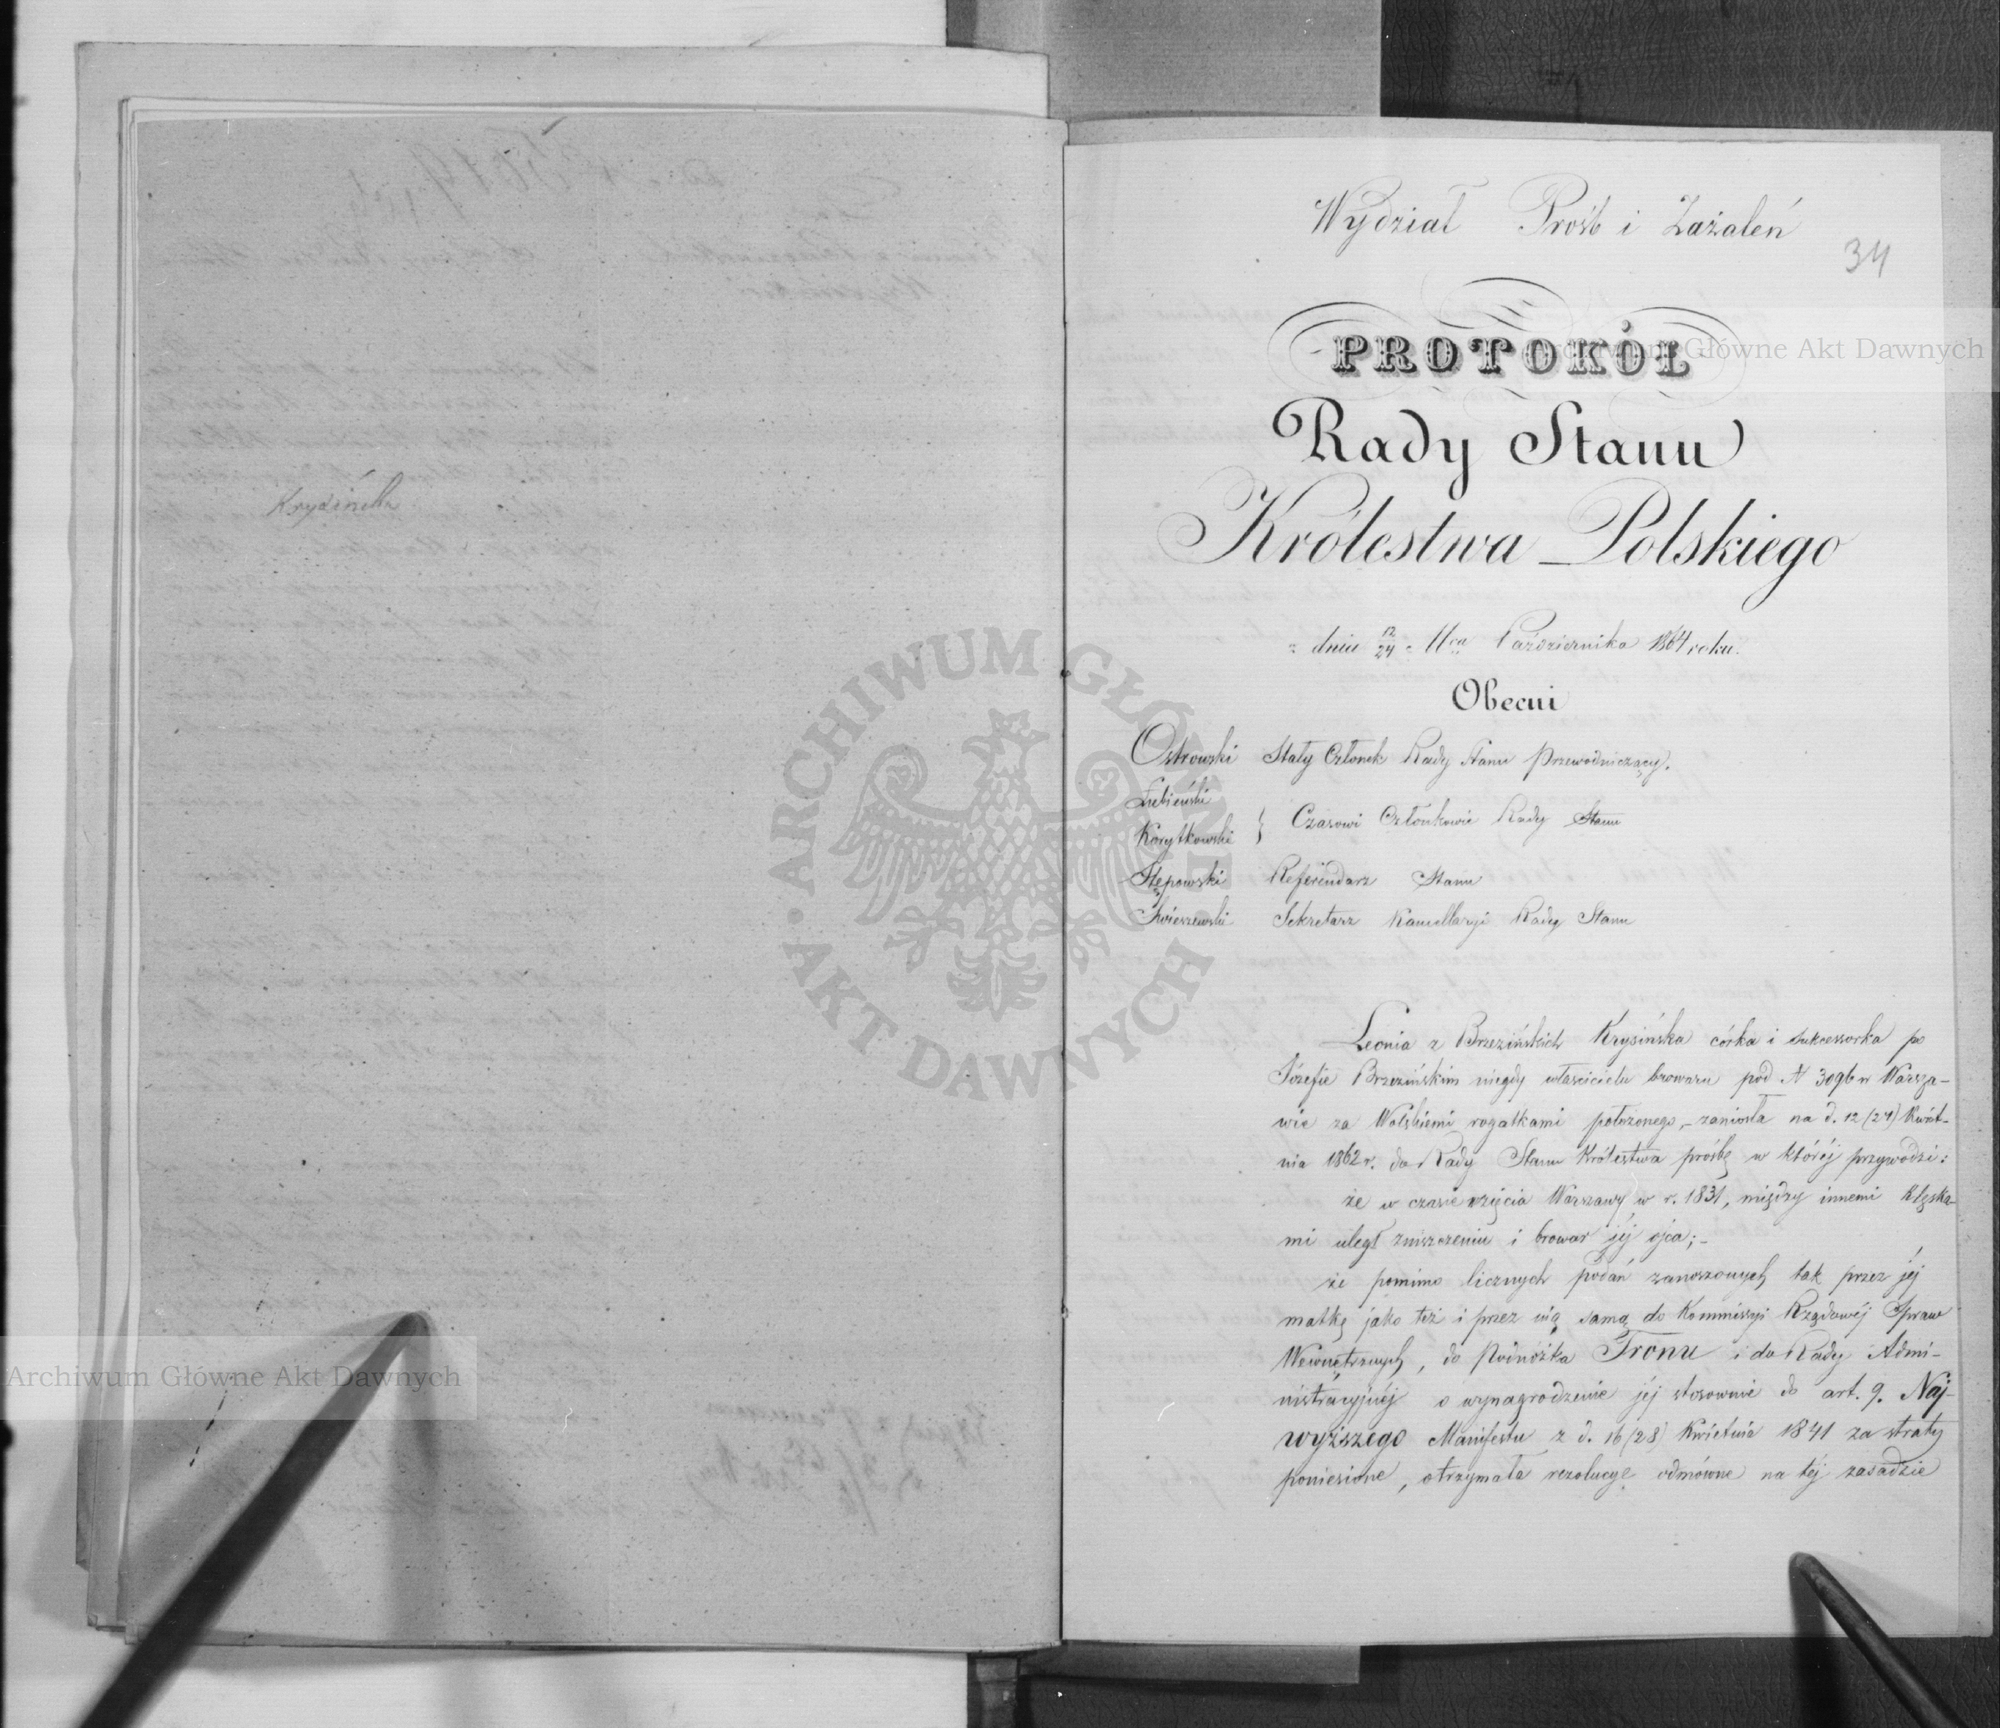 Krysińska
Wydział Prośb i Zażaleń
34
PROTOKÓŁ
Rady Stanu
Królestwa Polskiego
z dnia 12/24 Mca Października 1864 roku.
Obecni
Ostrowski Stały Członek Rady Stanu Przewodniczący.
Łubieński
Korytkowski } Czasowi Członkowie Rady Stanu
Stępowski Referendarz Stanu
Sekretarz Kancellaryi Rady Stanu
Leonia z Brzezińskich Krysińska córka i sukcessorka po
Józefie Brzezińskim niegdy właścicielu browaru pod N 3096 w Warsza-
wie za Wolskiemi rogatkami położonego, - zaniosła na d. 12 (24) Kwiet-
nia 1862 r. do Rady Stanu Królestwa prośbę w której przywodzi:
że w czasie wzięcia Warszawy w r. 1831, między innemi klęska-
mi uległ zniszczeniu i browar jéj ojca; -
że pomimo licznych podań zanoszonych tak przez jéj
matkę jako téż i przez nią samą do Kommissyi Rządowéj Spraw
Wewnętrznych, do Podnóżka Tronu i do Rady Admi-
nistracyjnéj o wynagrodzenie jéj stosownie do art. 9. Naj-
wyższego Manifestu z d. 16 (28) Kwietnia 1841 za straty
poniesione, otrzymała rezolucye odmówne na téj zasadzie
Archiwum Główne Akt Dawnych
Archiwum Główne Akt Dawnych
ARCHIWUM GŁÓWNE AKT DAWNYCH